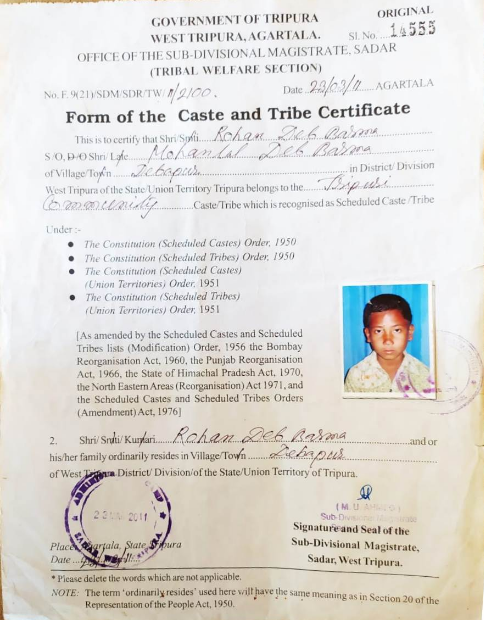 ORIGINAL
GOVERNMENT OF TRIPURA
WEST TRIPURA, AGARTALA.
Sl. No. 14555
OFFICE OF THE SUB-DIVISIONAL MAGISTRATE, SADAR
(TRIBAL WELFARE SECTION)
No. F. 9(21)/SDM/SDR/TW/ Date 23/03/11 AGARTALA
Form of the Caste and Tribe Certificate
This is to certify that Shri/Smti Rohan Deb Barma
S/O, D/O Shri/Late Mohanlal Deb Barma
of Village/Town Debapur in District/ Division
West Tripura of the State/Union Territory Tripura belongs to the Tripuri
Community Caste/Tribe which is recognised as Scheduled Caste /Tribe
Under :-
• The Constitution (Scheduled Castes) Order, 1950
• The Constitution (Scheduled Tribes) Order, 1950
• The Constitution (Scheduled Castes)
(Union Territories) Order, 1951
• The Constitution (Scheduled Tribes)
(Union Territories) Order, 1951
[As amended by the Scheduled Castes and Scheduled
Tribes lists (Modification) Order, 1956 the Bombay
Reorganisation Act, 1960, the Punjab Reorganisation
Act, 1966, the State of Himachal Pradesh Act, 1970,
the North Eastern Areas (Reorganisation) Act 1971, and
the Scheduled Castes and Scheduled Tribes Orders
(Amendment) Act, 1976]
2. Shri/ Smti/ Kumari Rohan Deb Barma and or
his/her family ordinarily resides in Village/Town Debapur
of West Tripura District/ Division/of the State/Union Territory of Tripura.
23 MAR 2011
Sub-Divisional Magistrate
Signature and Seal of the
Sub-Divisional Magistrate,
Sadar, West Tripura.
Place Agartala, State Tripura
Date
* Please delete the words which are not applicable.
NOTE: The term 'ordinarily resides' used here will have the same meaning as in Section 20 of the
Representation of the People Act, 1950.